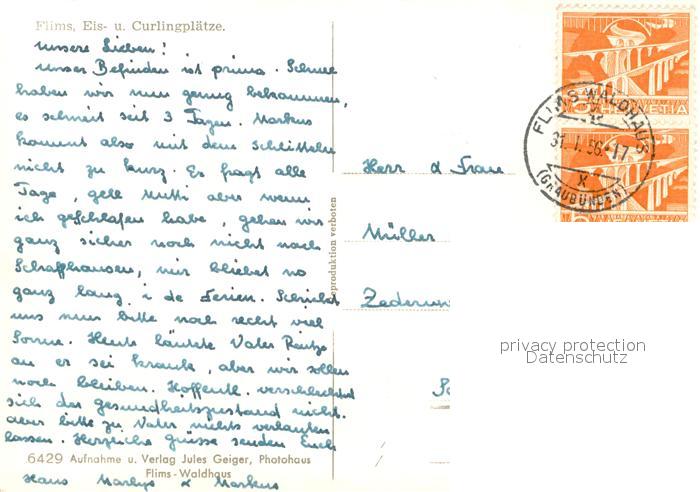 Flims, Eis- u. Curlingplätze.
Unsere Lieben!
Unser Befinden ist prima. Schnee
haben wir nun genug bekommen,
es schneit seit 3 Tagen. Markus
kommt also mit dem Schlitteln
nicht zu kurz. Er fragt alle
Tage, gell Mutti aber wenn
ich geschlafen habe, gehen wir
ganz sicher noch nicht nach
Schaffhausen, mir bliebet no
ganz lang i de Ferien. Schickt
uns nun bitte noch recht viel
Sonne. Heute läutete Vater
an er sei krank, aber wir sollen
noch bleiben. Hoffentl. verschlechtert
sich der gesundheitszustand nicht.
aber bitte zu Vater nichts verlauten
lassen. Herzliche Grüsse senden Euch
Hans Marlys & Markus
6429 Aufnahme u. Verlag Jules Geiger, Photohaus
Flims-Waldhaus
eproduktion verboten
Herr & Frau
Müller
HELVETIA
FLIMS-WALDHAUS
31.I.56.-17
X
(GRAUBÜNDEN)
privacy protection
Datenschutz